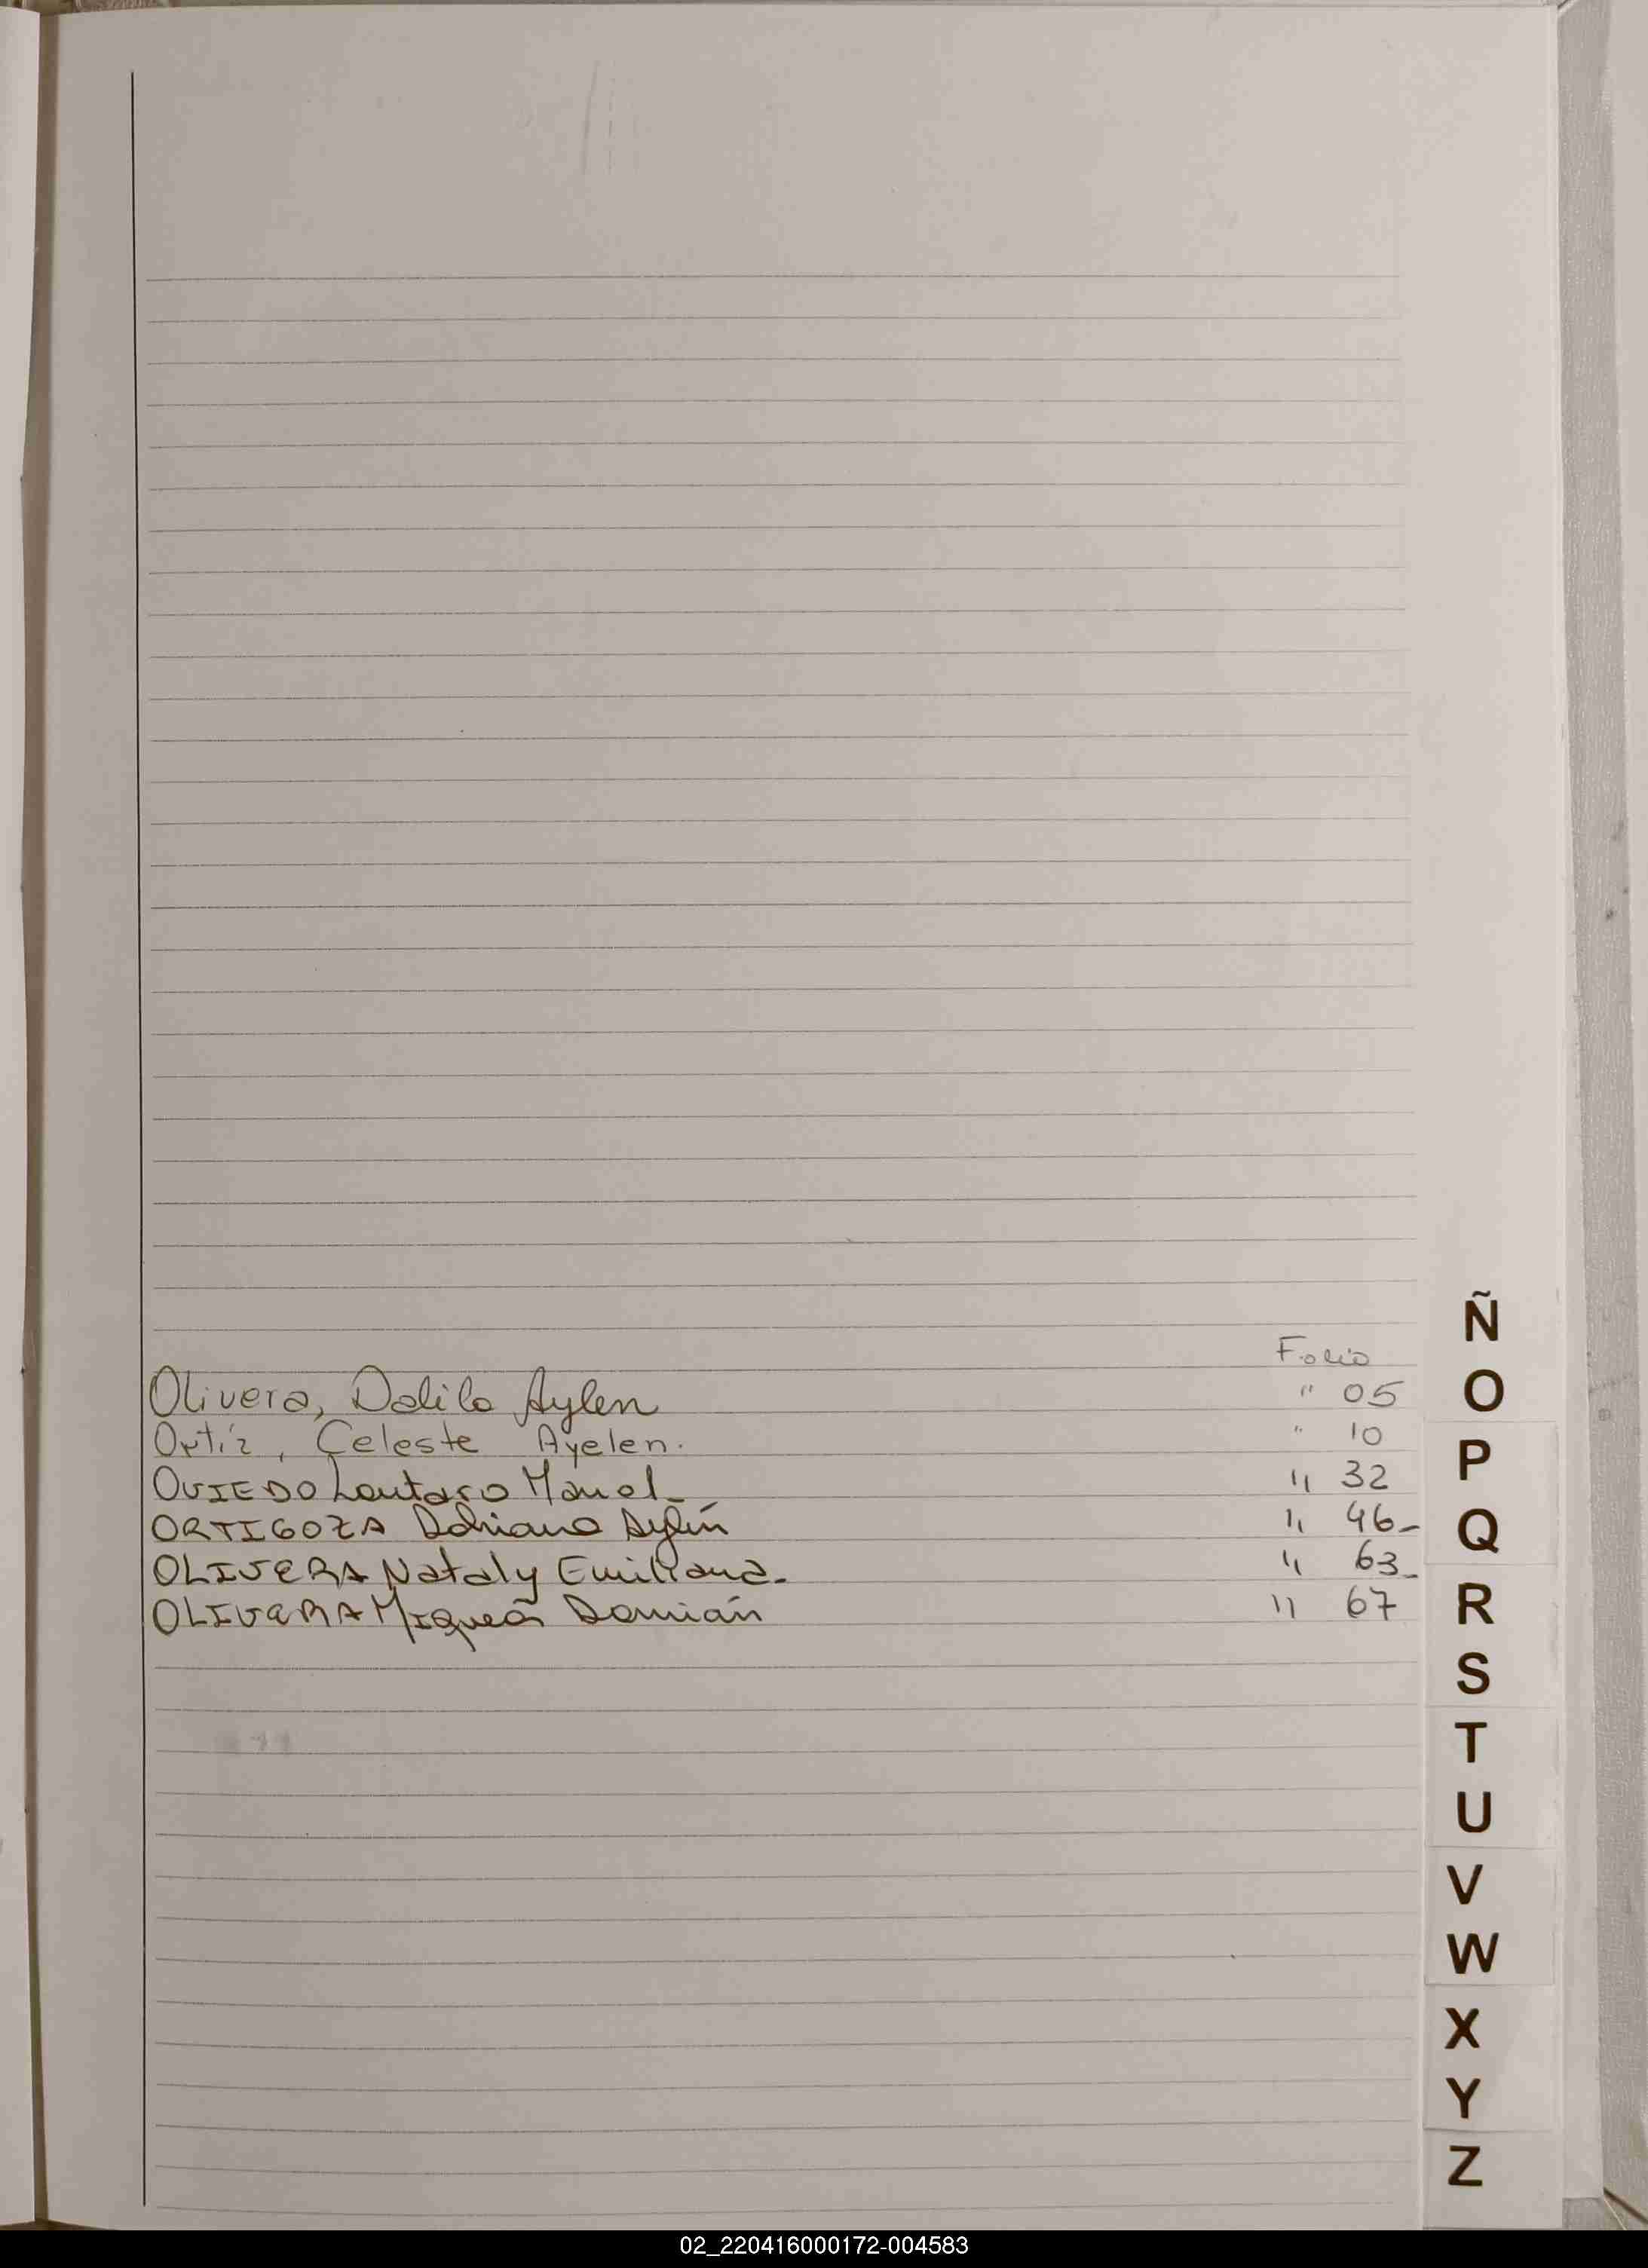 Ñ
Folio
O
Olivera, Dalila Aylen " 05
Ortíz, Celeste Ayelen. " 10
P
OVIEDO Lautaro Manuel_ " 32
ORTIGOZA Adriana Aylín " 46_
Q
OLIVERA Nataly Emiliana_ " 63_
OLIVERA Miqueas Damián " 67
R
S
T
U
V
W
X
Y
Z
02_220416000172-004583